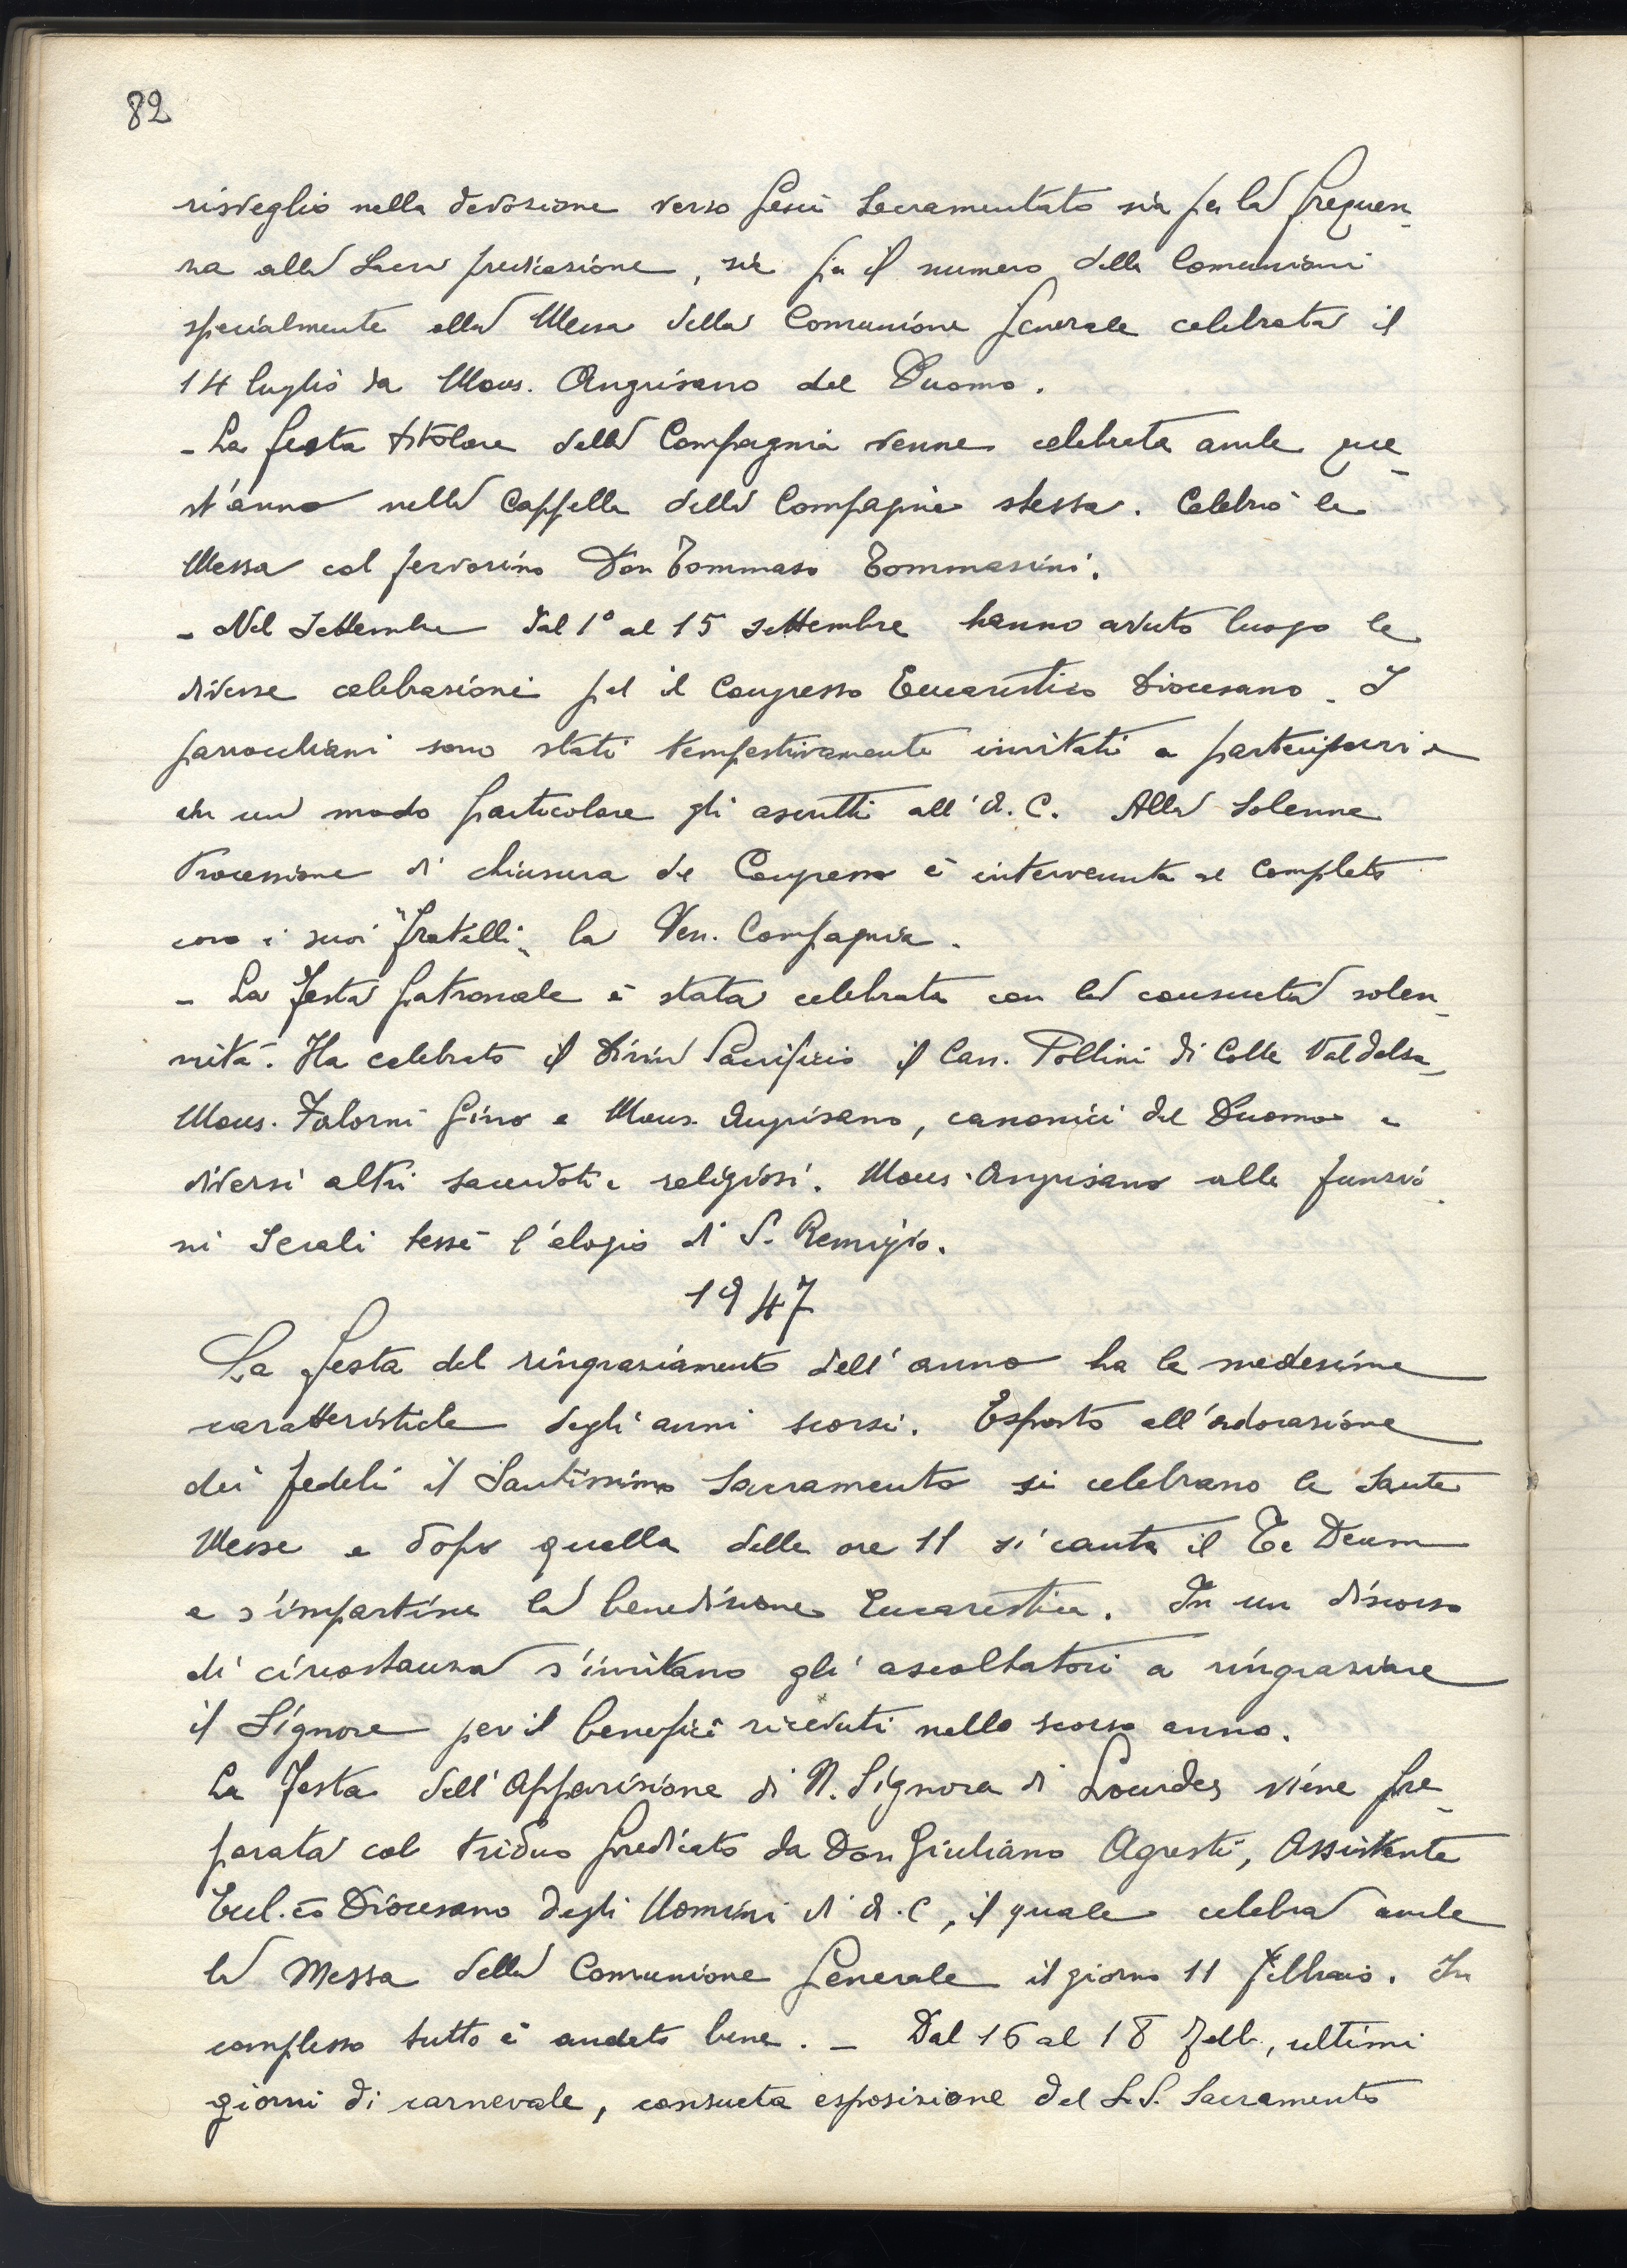 82
risveglio nella devozione verso Gesù Sacramentato sia per la frequen-
za alla Sacra predicazione, sia per il numero delle Comunioni
specialmente alla Messa della Comunione Generale celebrata il
14 luglio da Mons. Angrisano del Duomo.
- La festa titolare della Compagnia venne celebrata anche que-
st'anno nella Cappella della Compagnia stessa. Celebrò la
Messa col fervorino Don Tommaso Tommasini.
- Nel Settembre dal 1° al 15 settembre hanno avuto luogo le
diverse celebrazioni pel il Congresso Eucaristico Diocesano. I
parrocchiani sono stati tempestivamente invitati a parteciparvi e
in un modo particolare gli ascritti all'A. C. Alla Solenne
Processione di chiusura de Congresso è intervenuta al completo
con i suoi "fratelli" la Ven. Compagnia.
- La Festa patronale è stata celebrata con la consueta solen-
nità. Ha celebrato il Divin Sacrificio il Can. Pollini di Colle Valdelsa,
Mons. Falorni Gino e Mons. Angrisano, canonici del Duomo e
diversi altri sacerdoti e religiosi. Mons. Angrisano alle funzio-
ni Serali tessè l'elogio di S. Remigio.
1947
La festa del ringraziamento dell'anno ha le medesime
caratteristiche degli anni scorsi. Esposto all'adorazione
dei fedeli il Santissimo Sacramento si celebrano le Sante
Messe e dopo quella delle ore 11 si canta il Te Deum
e s'impartisce la benedizione Eucaristica. In un discorso
di circostanza s'invitano gli ascoltatori a ringraziare
il Signore per il benefici ricevuti nello scorso anno.
La Festa dell'Apparizione di N. Signora di Lourdes viene pre-
parata col triduo predicato da Don Giuliano Agresti, Assistente
Eccl.co Diocesano degli Uomini di A. C, il quale celebra anche
la Messa della Comunione Generale il giorno 11 Febbraio. In
complesso tutto è andato bene. - Dal 16 al 18 Febb., ultimi
giorni di carnevale, consueta esposizione del S.S. Sacramento